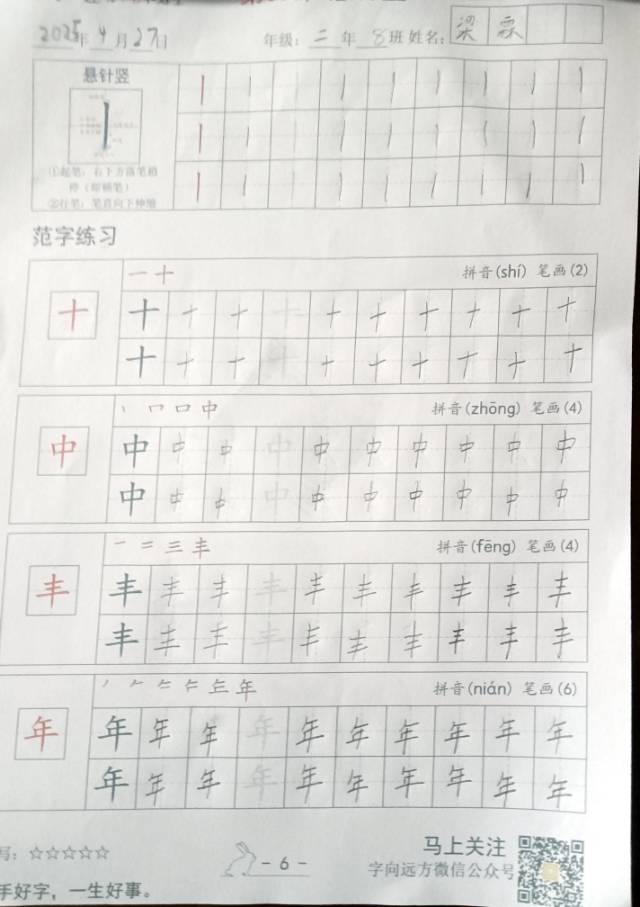 2025年4月27日 年级：二年8班 姓名：梁
悬针竖
①起笔：右下方落笔稍
②行笔：笔直向下伸缩
范字练习
一 十 拼音(shí) 笔画(2)
十 十 十 十 十 十 十 十 十 十 十
十 十 十 十 十 十 十 十 十 十
丨 口 口 中 拼音(zhōng) 笔画(4)
中 中 中 中 中 中 中 中 中 中 中
中 中 中 中 中 中 中 中 中 中
一 二 三 丰 拼音(fēng) 笔画(4)
丰 丰 丰 丰 丰 丰 丰 丰 丰 丰 丰
丰 丰 丰 丰 丰 丰 丰 丰 丰 丰
年 拼音(nián) 笔画(6)
年 年 年 年 年 年 年 年 年 年 年
年 年 年 年 年 年 年 年 年 年
写：☆☆☆☆☆ - 6 - 马上关注
字向远方微信公众号
手好字，一生好事。